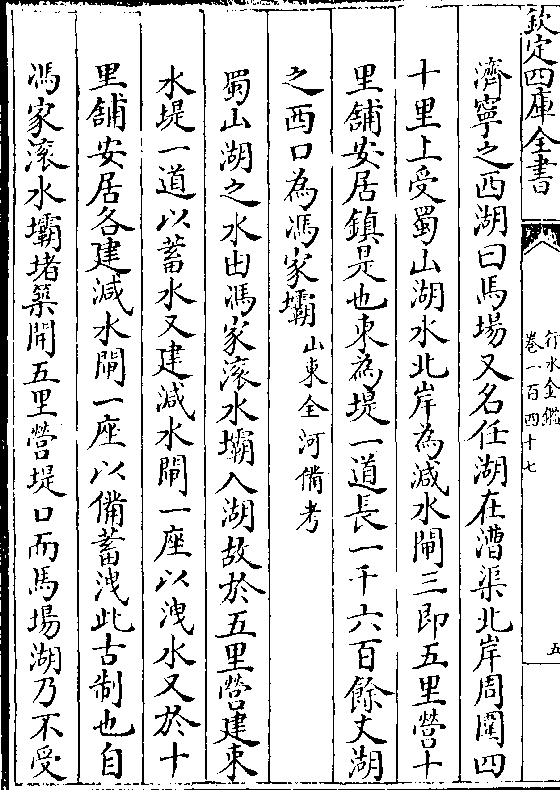 欽定四庫全書
行水金鑑
卷一百四十七
五
濟寧之西湖曰馬場又名任湖在漕渠北岸周圍四
十里上受蜀山湖水北岸為減水閘三即五里營十
里舖安居鎮是也東為堤一道長一千六百餘丈湖
之西口為馮家壩山東全河備考
蜀山湖之水由馮家滚水壩入湖故於五里營建束
水堤一道以蓄水又建減水閘一座以洩水又於十
里舖安居各建減水閘一座以備蓄洩此古制也自
馮家滚水壩堵築開五里營堤口而馬場湖乃不受